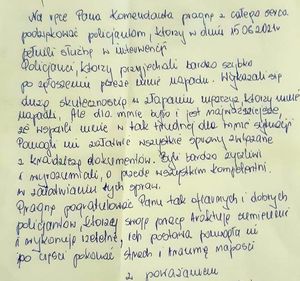 Na ręce Pana Komendanta pragnę z całego serca
podziękować policjantom, którzy w dniu 15.06.2021r
pełnili służbę w interwencji
Policjanci, którzy przyjechali bardzo szybko
po zgłoszeniu przeze mnie napadu. Wykazali się
dużą skutecznością w złapaniu mężczyzn którzy mnie
napadli. Ale dla mnie było i jest najważniejsze,
że wsparli mnie w tak trudnej dla mnie sytuacji
Pomogli mi załatwić wszystkie sprawy związane
z kradzieżą dokumentów. Byli bardzo życzliwi
i wyrozumiali, a przede wszystkim kompetentni
w załatwianiu tych spraw.
Pragnę pogratulować Panu tak ofiarnych i dobrych
policjantów, którzy swoją pracę traktują sumiennie
i wykonują rzetelnie, ich postawa pomogła mi
po części pokonać strach i traumę napaści
z poważaniem